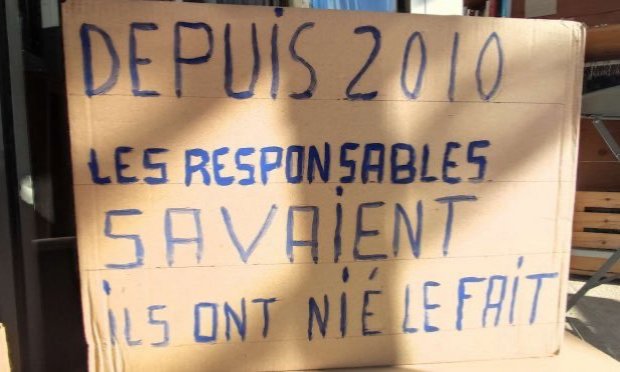 DEPUIS 2010
LES RESPONSABLES
SAVAIENT
iLS ONT NiÉ LE FAiT